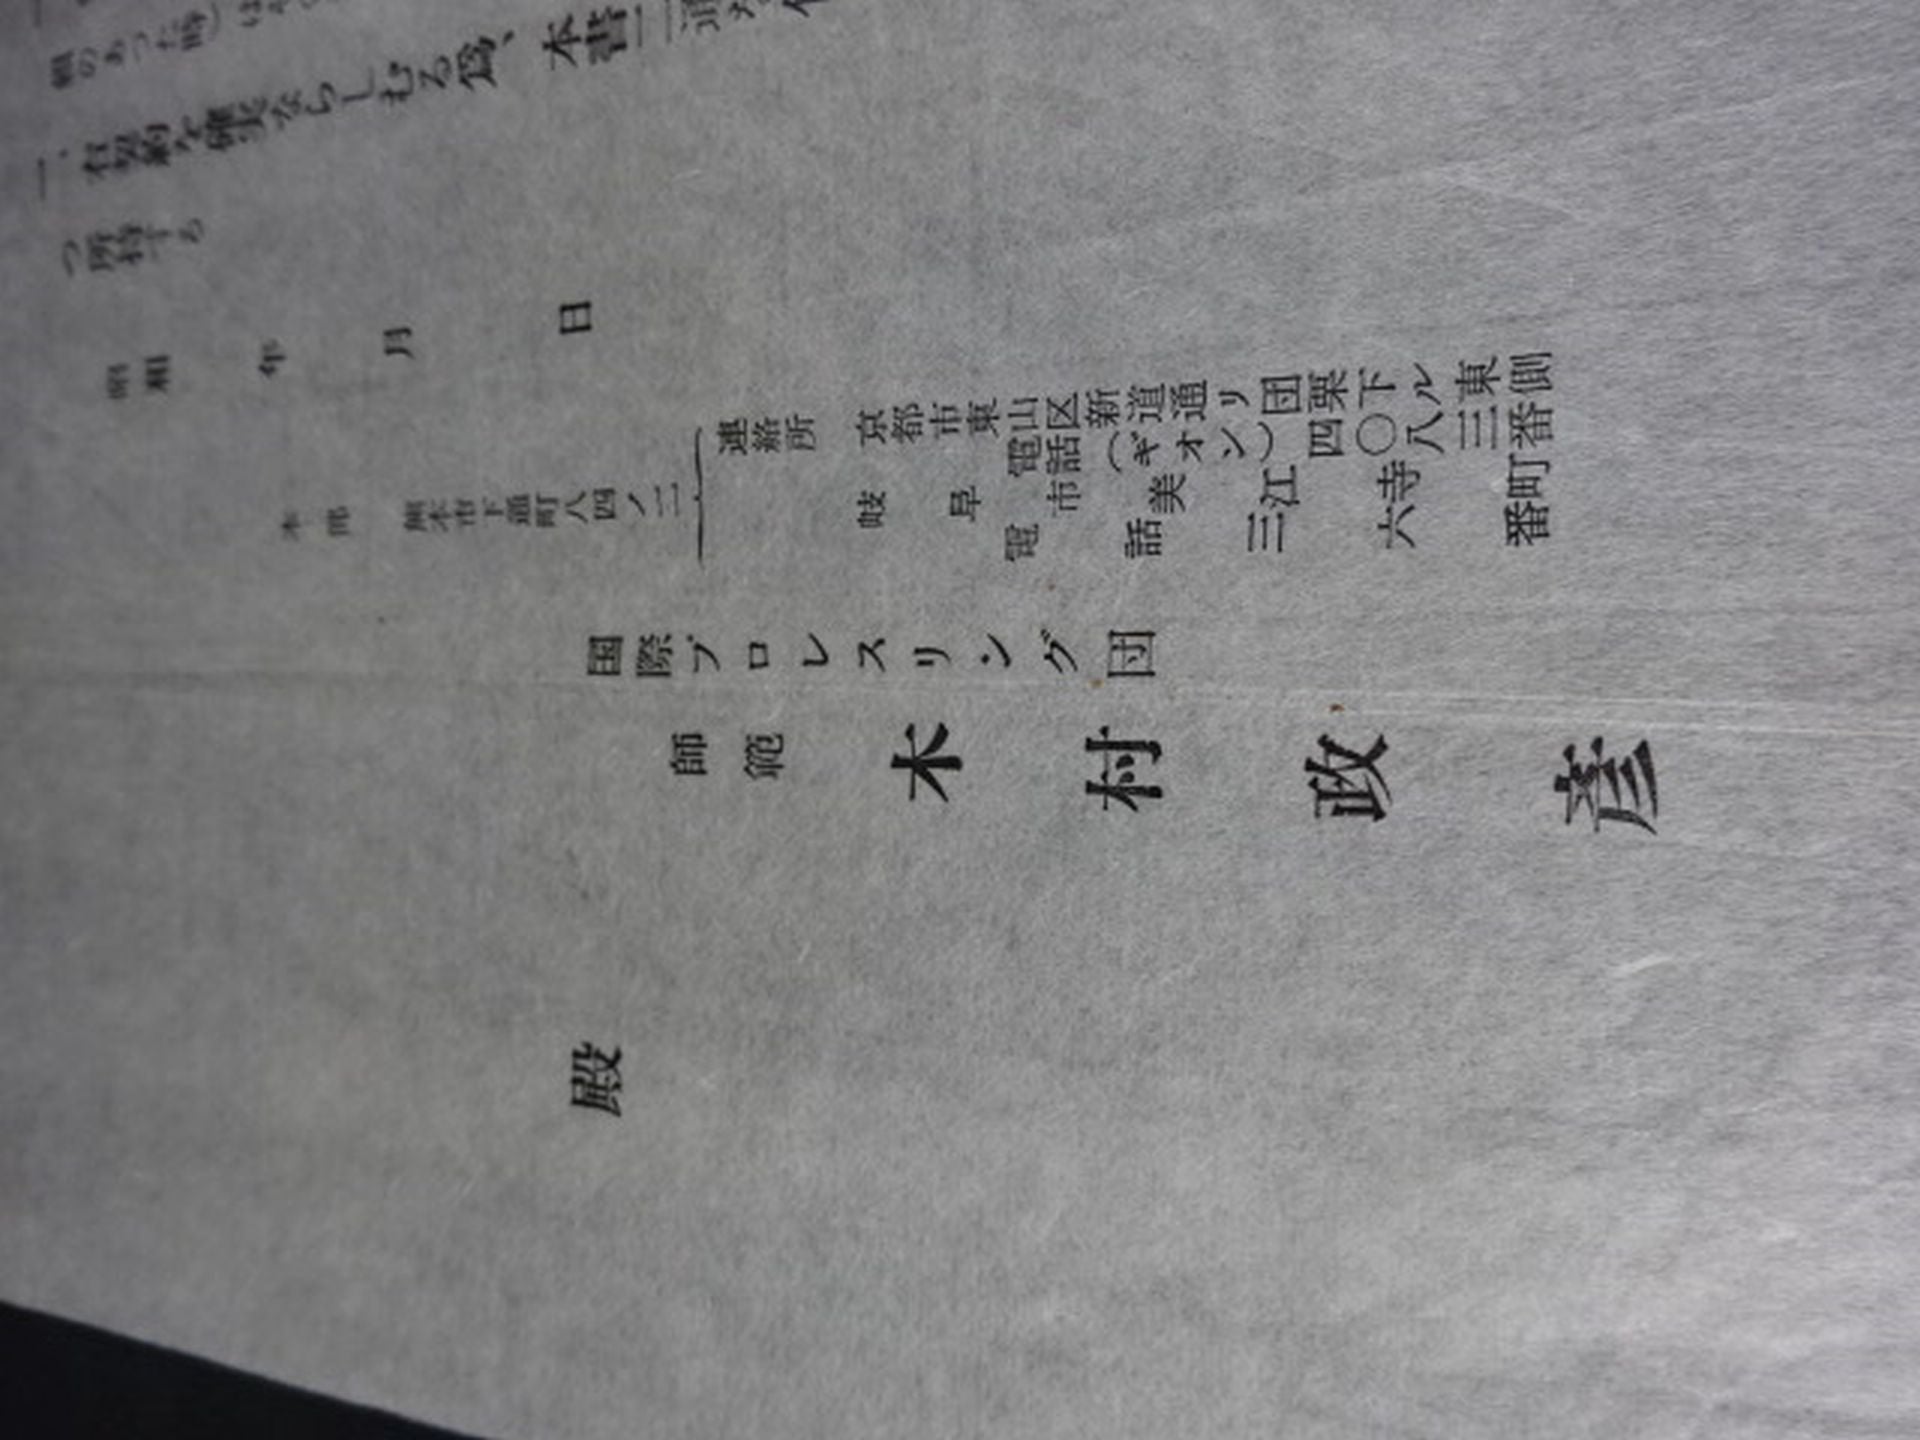 頼のあった時）は
一、右契約を確実ならしむる爲、本書二通
つ所持する
昭和　年　月　日
本部　熊本市下通町八四ノ二
連絡所　京都市東山区新道通リ団栗下ル東側
電話（ギオン）四〇八三番
岐阜市美江寺町
電話三六番
国際プロレスリング団
師範　木村政彦
殿